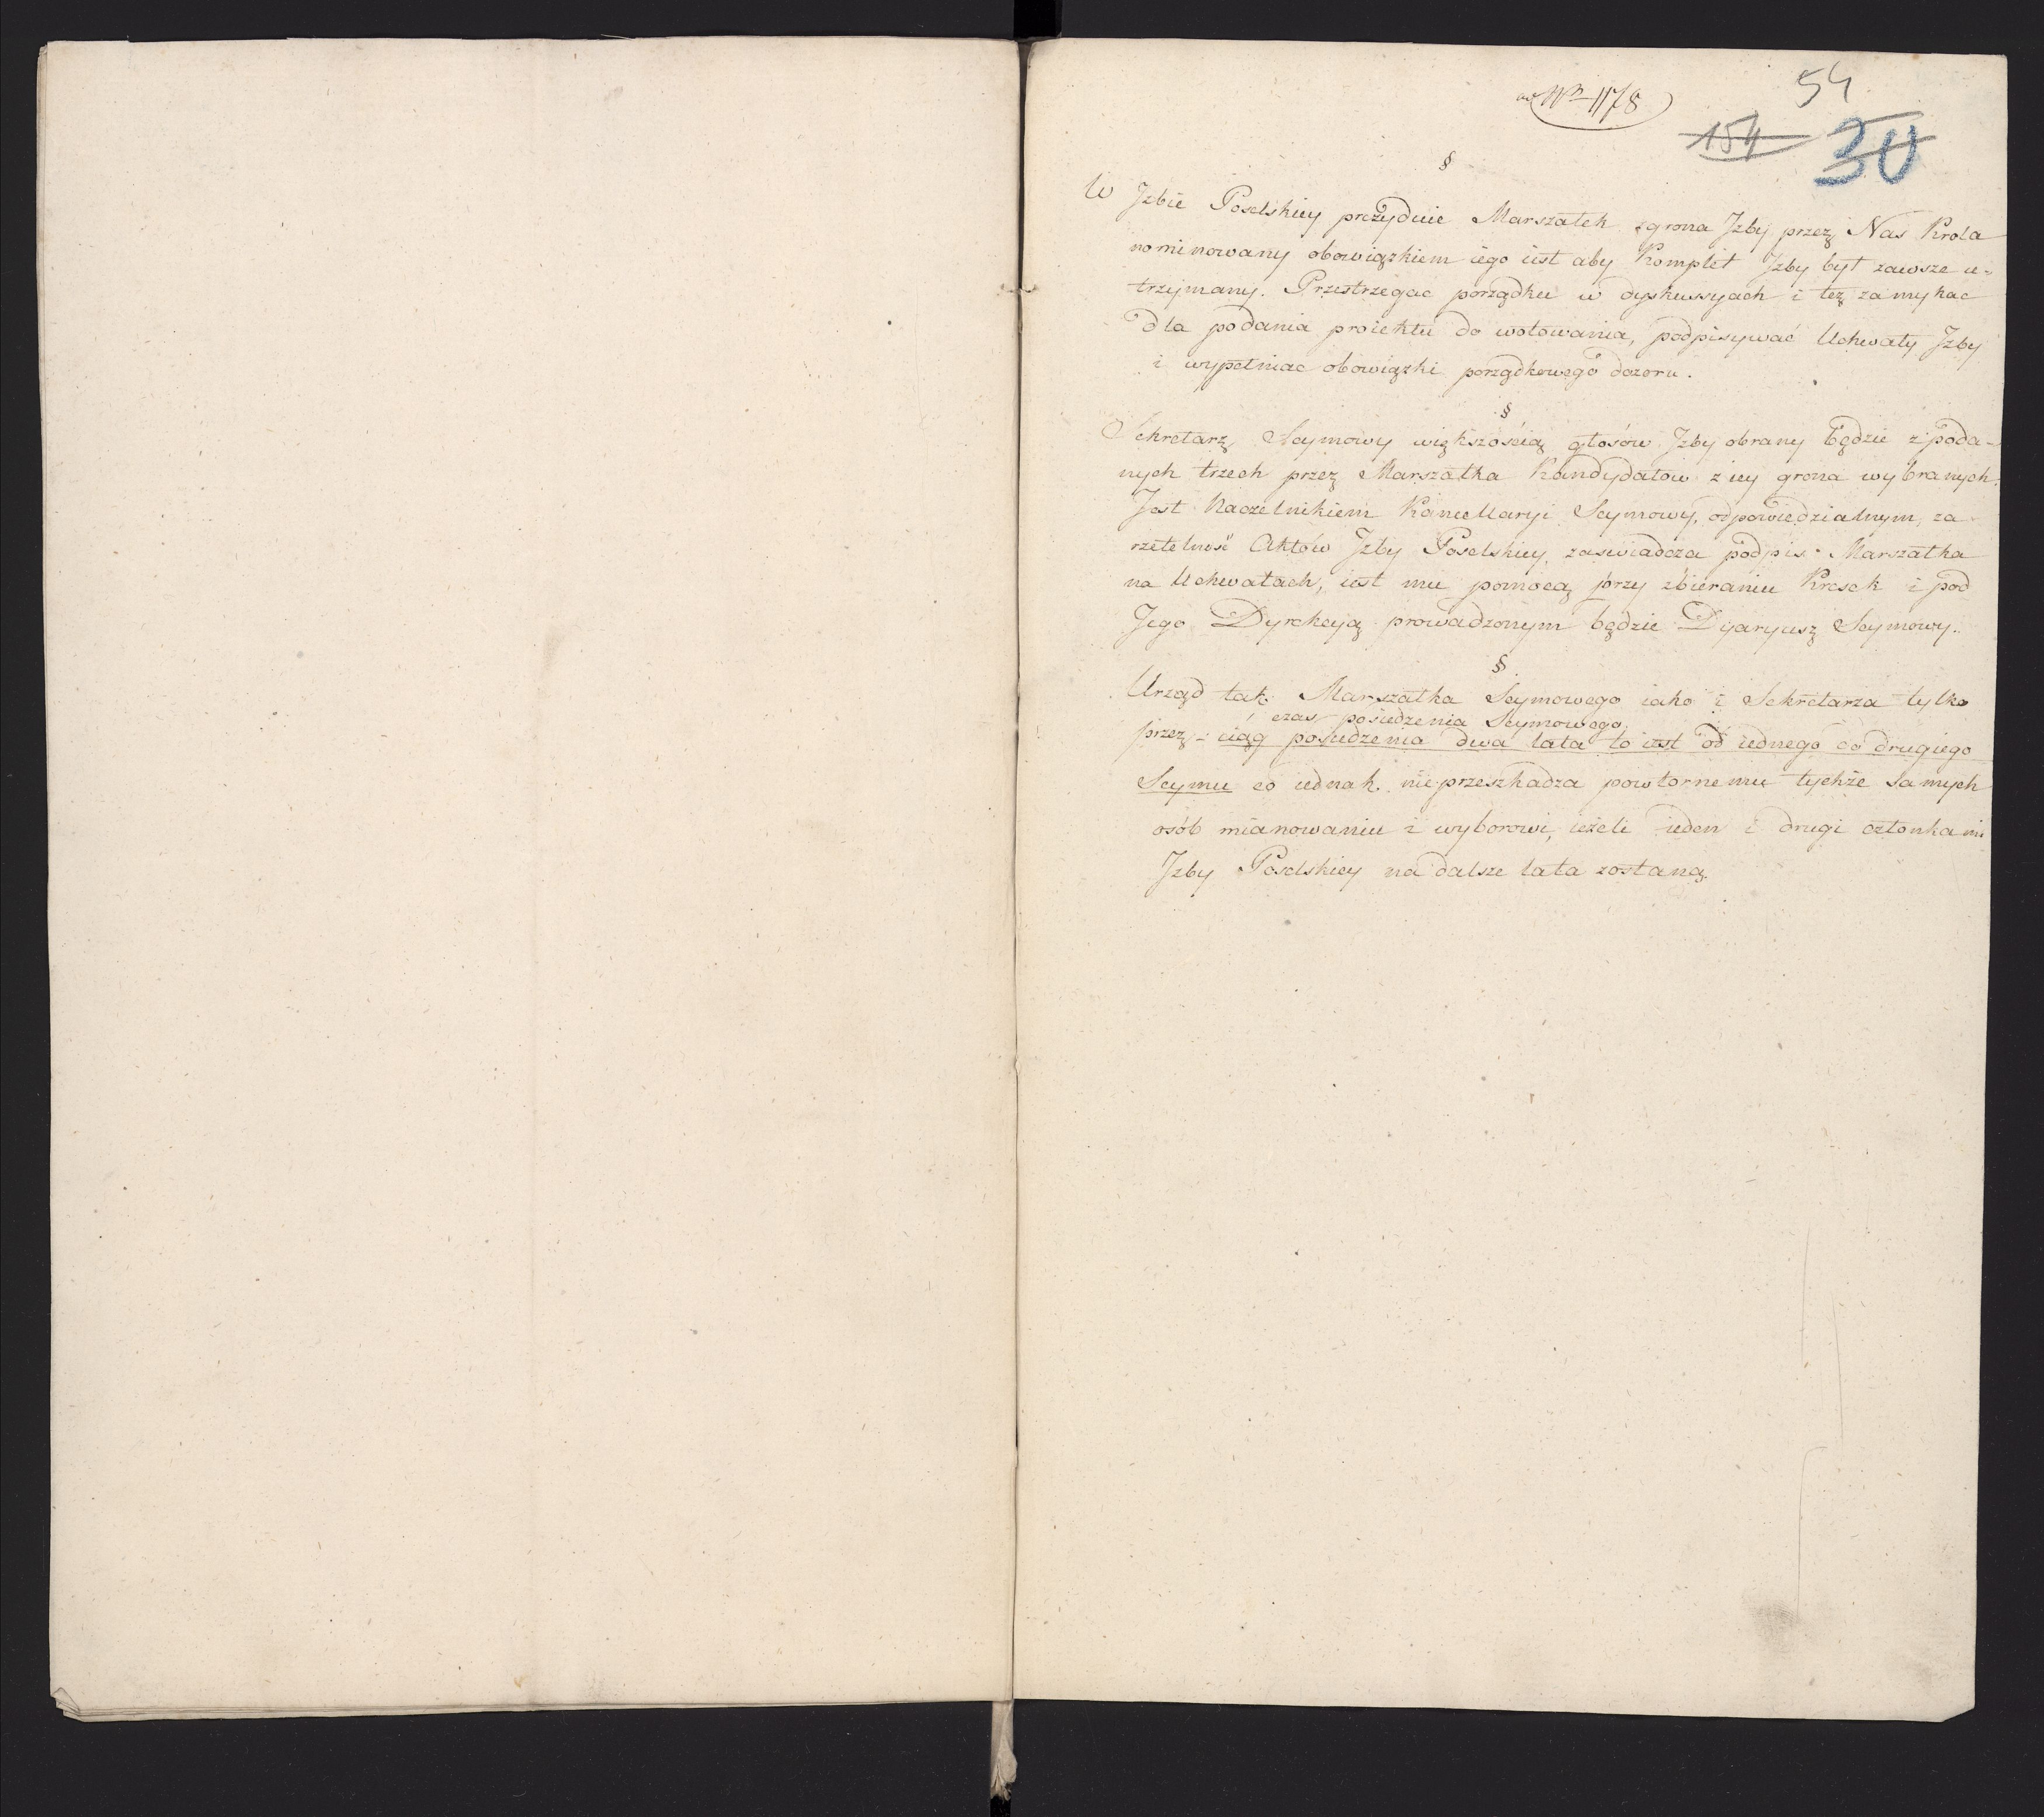 ad Nro 1178
54
154 30
§
W Jzbie Poselskiey prezyduie Marszałek z grona Jzby przez Nas Krola
nominowany obowiązkiem iego iest aby Komplet Jzby był zawsze u-
trzymany. Przestrzegac porządku w dyskussyach i też zamykac
dla podania proiektu do wotowania, podpisywać Uchwały Jzby
i wypełniac obowiązki porządkowego dozoru.
§
Sekretarz Seymowy większością głosów Jzby obrany będzie z poda-
nych trzech przez Marszałka Kandydatow z iey grona wybranych.
Jest Naczelnikiem Kancellaryi Seymowy, odpowiedzialnym za
rzetelność Aktów Jzby Poselskiey, zaswiadcza podpis Marszałka
na Uchwałach, iest mu pomocą przy zbieraniu Kresek i pod
Jego Dyrekcyą prowadzonym będzie Dyaryusz Seymowy.
§
Urząd tak Marszałka Seymowego iako i Sekretarza tylko
czas posiedzenia Seymowego
przez ciąg posiedzenia dwa lata to iest od iednego do drugiego
Seymu co iednak nie przeszkadza powtornemu tychże samych
osób mianowaniu i wyborowi, ieżeli ieden i drugi członkami
Jzby Poselskiey na dalsze lata zostaną.